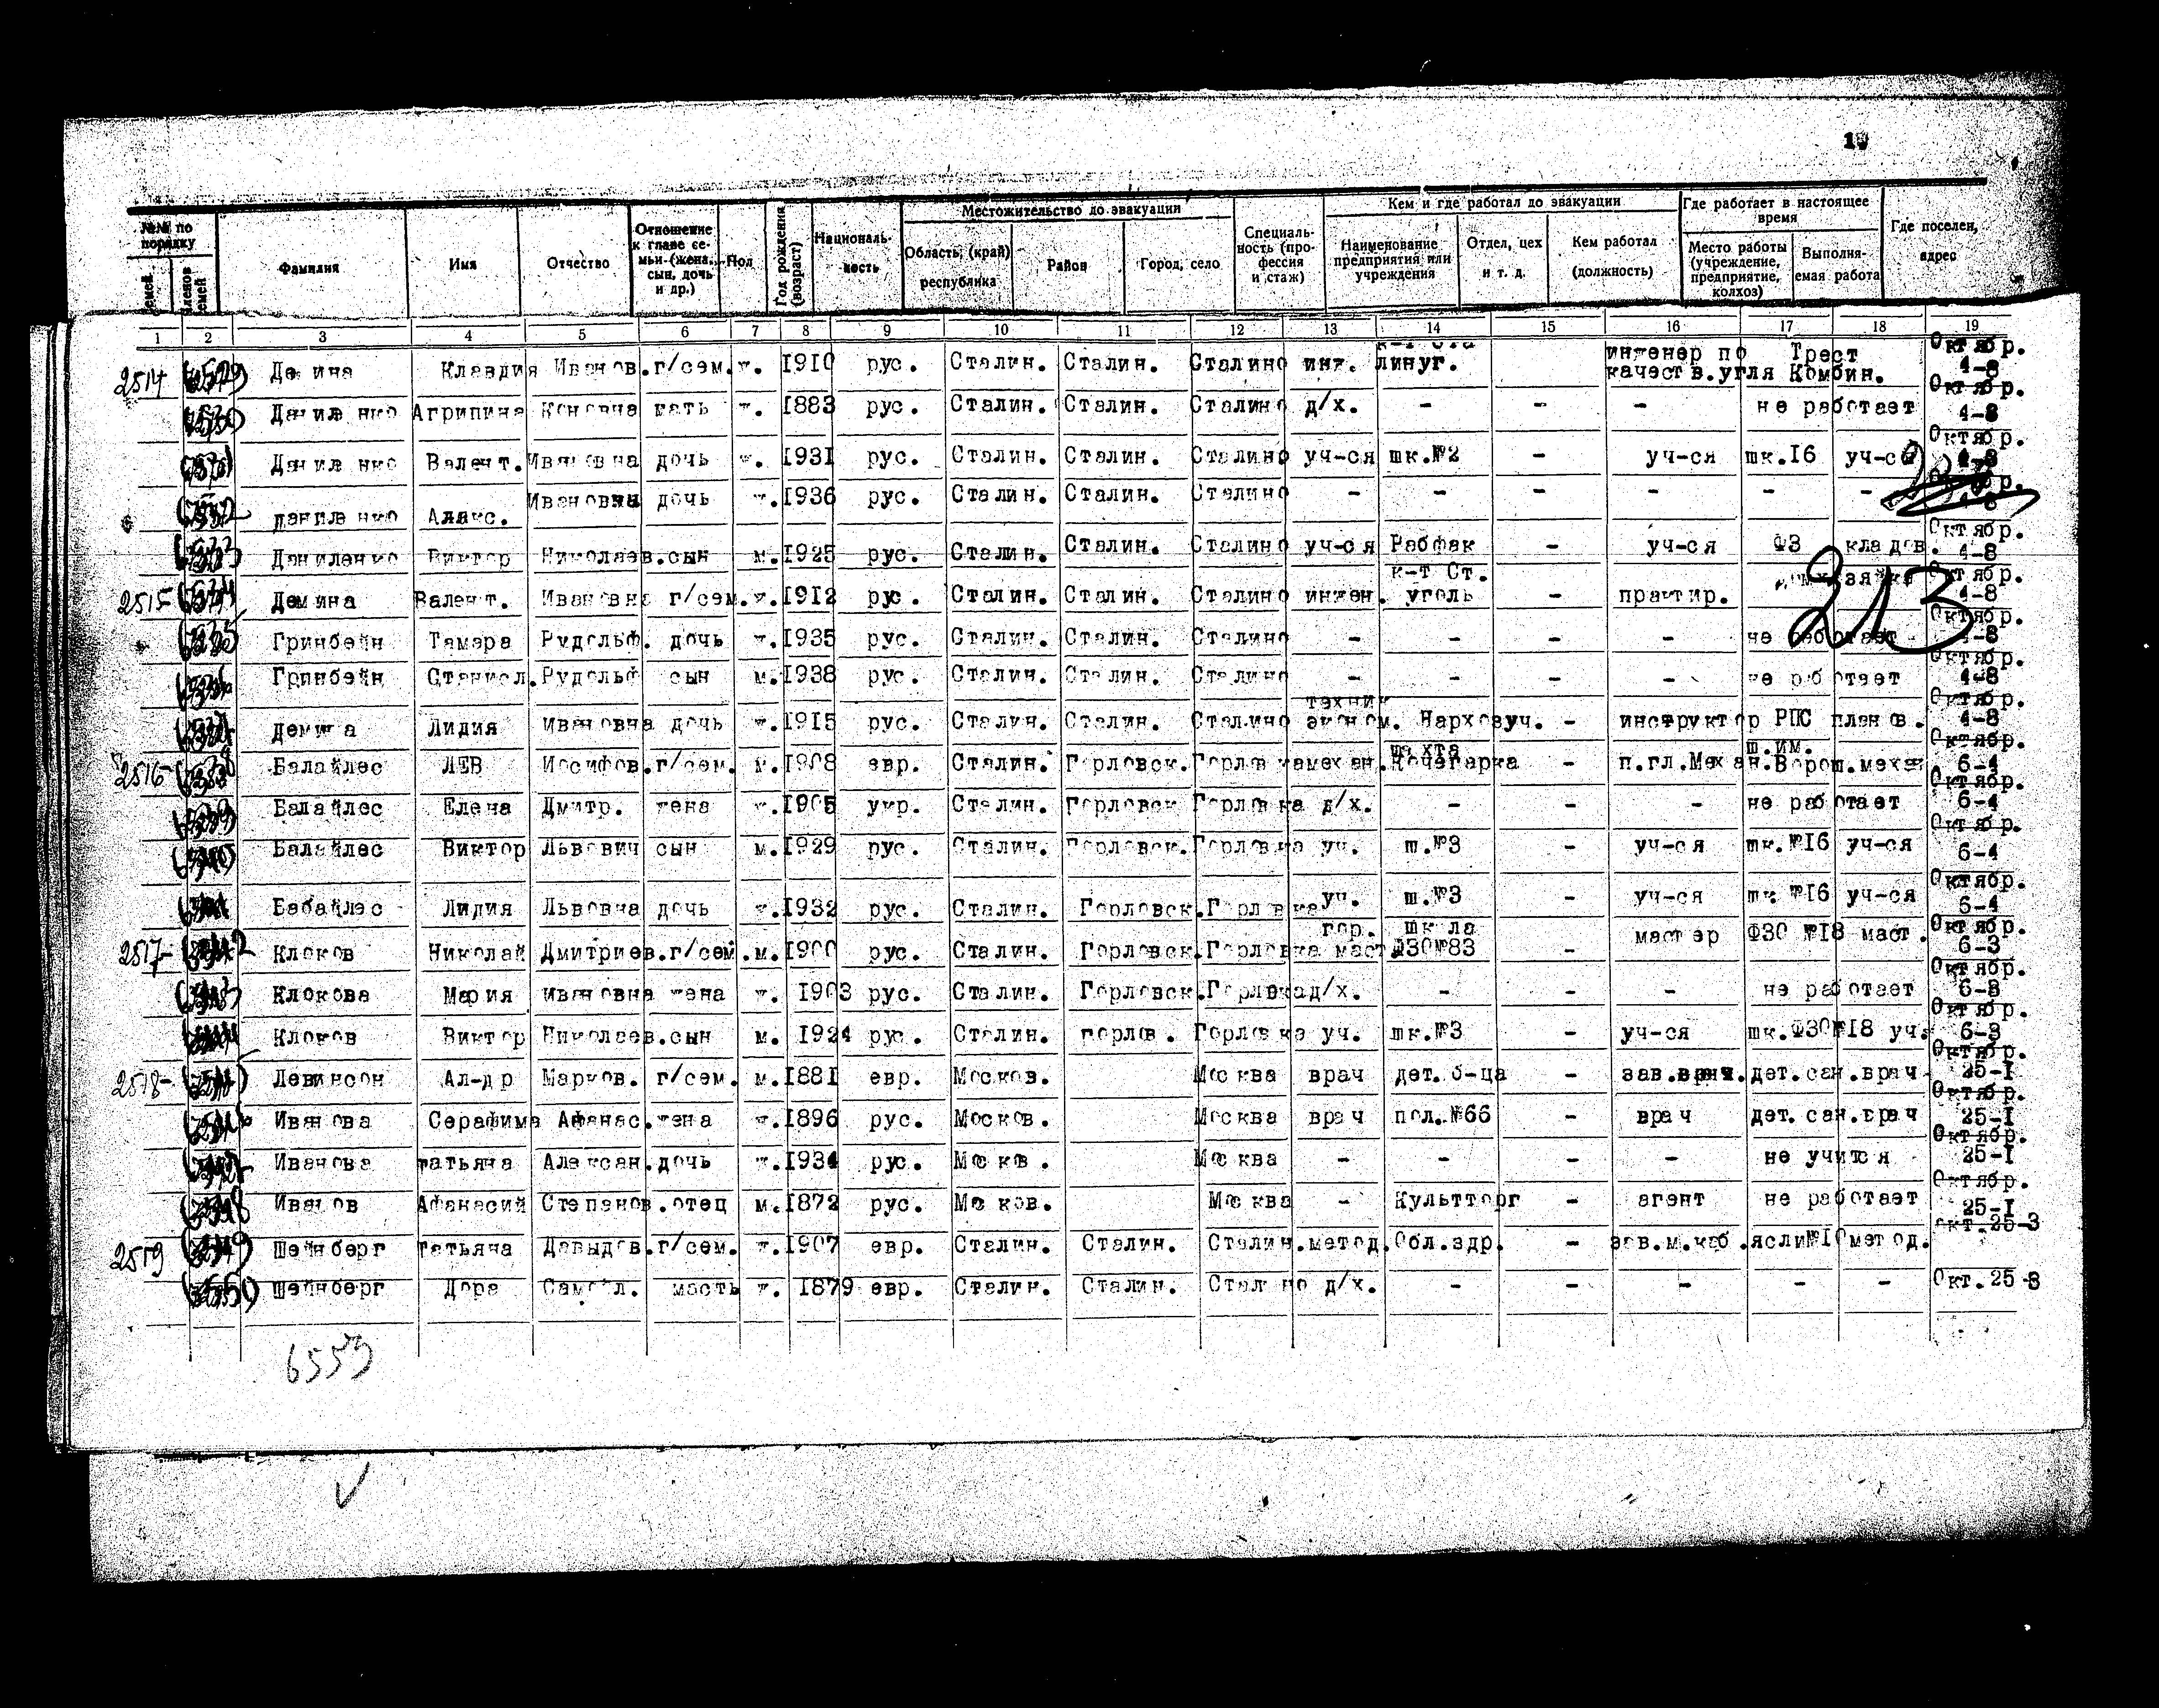 19
№№ по порядку
семей
членов семей
Фамилия
Имя
Отчество
Отношение к главе семьи (жена, сын, дочь и др.)
Пол
Год рождения (возраст)
Националь-ность
Местожительство до эвакуации
Область, (край) республика
Район
Город, село
Специаль-ность (про-фессия и стаж)
Кем и где работал до эвакуации
Наименование предприятия или учреждения
Отдел, цех и т. д.
Кем работал (должность)
Где работает в настоящее время
Место работы (учреждение, предприятие, колхоз)
Выполня-емая работа
Где поселен, адрес
1 2 3 4 5 6 7 8 9 10 11 12 13 14 15 16 17 18 19
2514 Демина Клавдия Иванов. г/сем. ж. 1910 рус. Сталин. Сталин. Сталино инж. линуг. инженер по качеств.угля Трест Комбин. Октябр. 4-8
Даниленко Агрипина Коновна мать ж. 1883 рус. Сталин. Сталин. Сталино д/х. - - - не работает Октябр. 4-8
Даниленко Валент. Ивановна дочь ж. 1931 рус. Сталин. Сталин. Сталино уч-ся шк.№2 - уч-ся шк.16 уч-ся Октябр. 4-8
Даниленко Алекс. Ивановна дочь ж. 1936 рус. Сталин. Сталин. Сталино - - - - - -
Даниленко Виктор Николаев. сын м. 1925 рус. Сталин. Сталин. Сталино уч-ся Рабфак - уч-ся ФЗ кладов. Октябр. 4-8
2515 Демина Валент. Ивановна г/сем. ж. 1912 рус. Сталин. Сталин. Сталино инжен. к-т Ст. уголь - практир. Октябр. 4-8
213
Гринбейн Тамара Рудольф. дочь ж. 1935 рус. Сталин. Сталин. Сталино - - - - не работает Октябр. 4-8
Гринбейн Станисл. Рудольф сын м. 1938 рус. Сталин. Сталин. Сталино - - - - не работает Октябр. 4-8
Демина Лидия Ивановна дочь ж. 1915 рус. Сталин. Сталин. Сталино техник эконом. Нархозуч. - инструктор РПС планов. Октябр. 4-8
2516 Балайлес ЛЕВ Иосифов. г/сем. м. 1908 евр. Сталин. Горловск. Горловка механ. шахта Кочегарка - п.гл.Механ. ш.им. Ворош. механ Октябр. 6-4
Балайлес Елена Дмитр. жена ж. 1905 укр. Сталин. Горловск Горловка д/х. - - - не работает Октябр. 6-4
Балайлес Виктор Львович сын м. 1929 рус. Сталин. Горловск. Горловка уч. ш.№3 - уч-ся шк.№16 уч-ся Октябр. 6-4
Бабайлес Лидия Львовна дочь ж. 1932 рус. Сталин. Горловск. Горловка уч. ш.№3 - уч-ся шк.№16 уч-ся Октябр. 6-4
2517 Клоков Николай Дмитриев. г/сем. м. 1900 рус. Сталин. Горловск. Горловка гор. маст. школа ФЗО№83 - мастер ФЗО №18 маст. Октябр. 6-3
Клокова Мария Ивановна жена ж. 1903 рус. Сталин. Горловск. Горловка д/х. - - - не работает Октябр. 6-3
Клоков Виктор Николаев. сын м. 1924 рус. Сталин. Горлов. Горловка уч. шк.№3 - уч-ся шк.ФЗО№18 уч. Октябр. 6-3
2518 Левинсон Ал-др Марков. г/сем. м. 1881 евр. Москов. Москва врач дет.б-ца - зав.врач. дет.сан. врач Октябр. 25-1
Иванова Серафима Афанас. жена ж. 1896 рус. Москов. Москва врач пол.№66 - врач дет.сан. врач Октябр. 25-1
Иванова Татьяна Алексан. дочь ж. 1934 рус. Москов. Москва - - - - не учится Октябр. 25-1
Иванов Афанасий Степанов. отец м. 1872 рус. Москов. Москва - Культторг - агент не работает Октябр. 25-1
2519 Шейнберг Татьяна Давыдов. г/сем. ж. 1907 евр. Сталин. Сталин. Сталин. метод. Обл.здр. - зав.м.каб. ясли№10 метод. окт.25-3
Шейнберг Дора Самойл. масть ж. 1879 евр. Сталин. Сталин. Сталино д/х. - - - - - Окт.25-3
6553